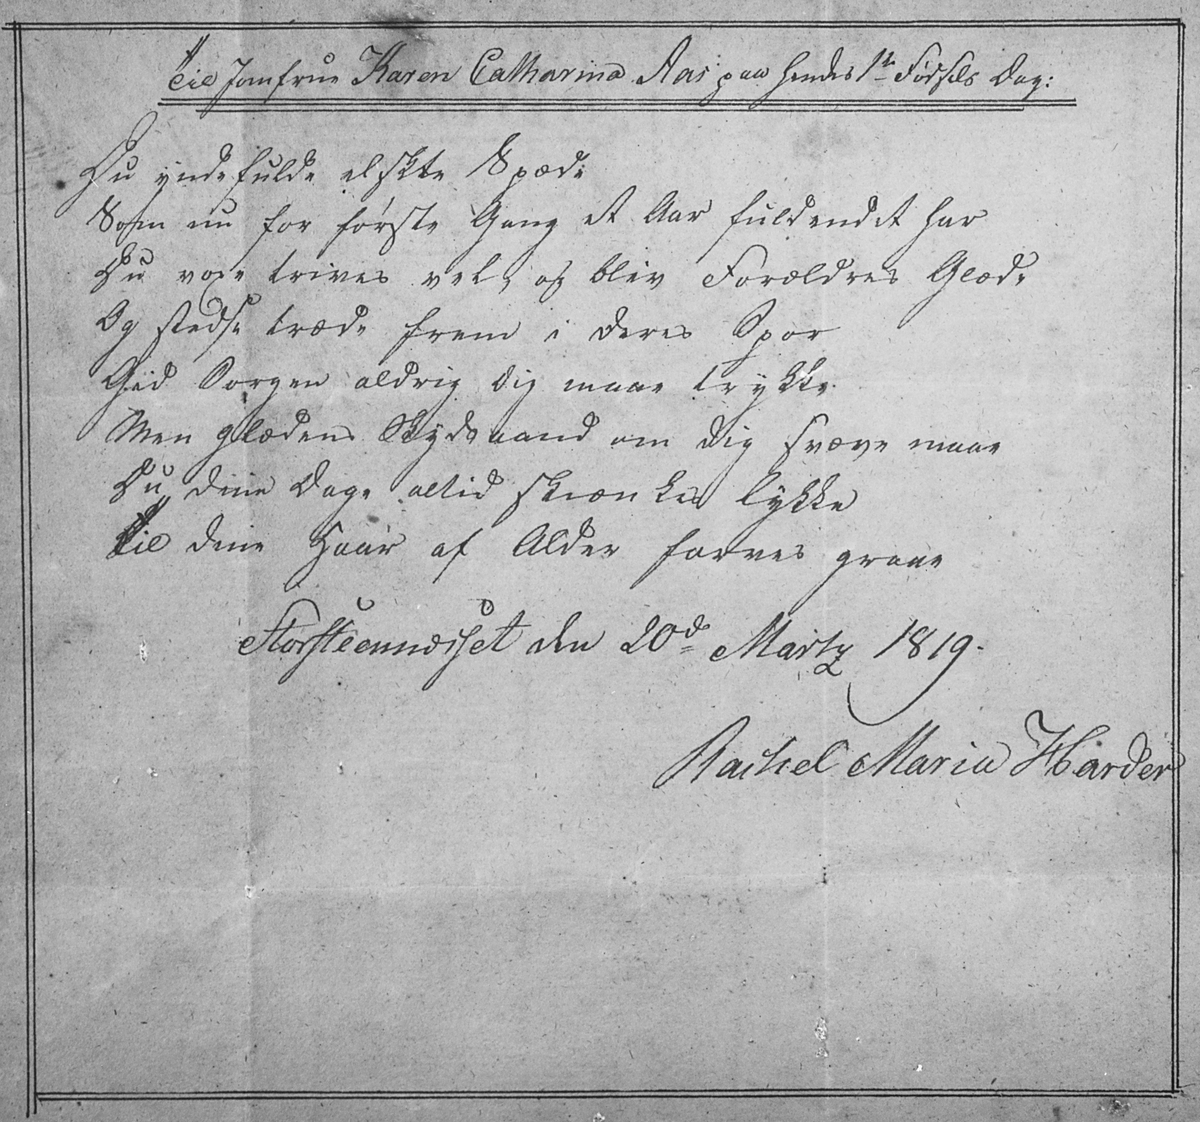 Til Jomfrue Karen Catharina Aas paa hendes 1ste Fødsels Dag:
Du yndefulde elskte Spæde
Som nu for første Gang et Aar fuldendet har
Du voxe trives vel, og bliv Forældres Glæde
Og stedse træde frem i deres Spor
Gid Sorgen aldrig dig maae trykke
Men glædens Skydsaand om dig svæve maae
Du dine Dage altid skiænkes lykke
Til dine Haar af Alder farves graae
Storsteennæsset den 20de Martz 1819.
Rachel Maria Harder